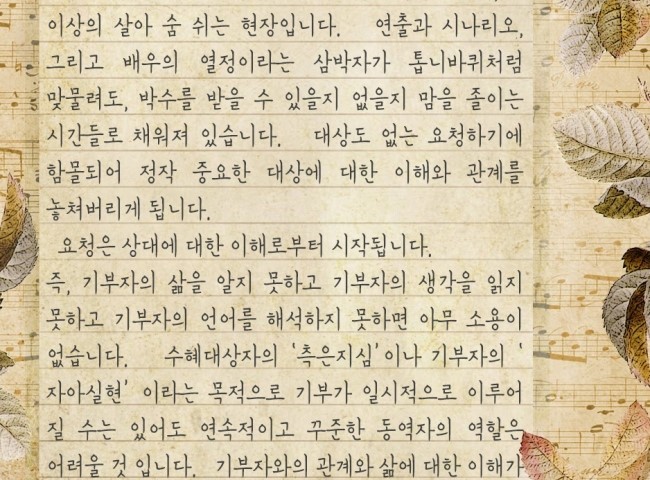 이상의 살아 숨 쉬는 현장입니다. 연출과 시나리오,
그리고 배우의 열정이라는 삼박자가 톱니바퀴처럼
맞물려도, 박수를 받을 수 있을지 없을지 맘을 졸이는
시간들로 채워져 있습니다. 대상도 없는 요청하기에
함몰되어 정작 중요한 대상에 대한 이해와 관계를
놓쳐버리게 됩니다.
요청은 상대에 대한 이해로부터 시작됩니다.
즉, 기부자의 삶을 알지 못하고 기부자의 생각을 읽지
못하고 기부자의 언어를 해석하지 못하면 아무 소용이
없습니다. 수혜대상자의 '측은지심'이나 기부자의 '
자아실현' 이라는 목적으로 기부가 일시적으로 이루어
질 수는 있어도 연속적이고 꾸준한 동역자의 역할은
어려울 것 입니다. 기부자와의 관계와 삶에 대한 이해가